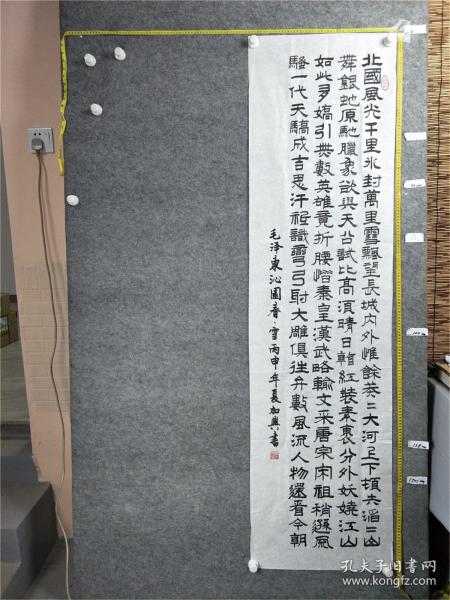 北國風光千里冰封萬里雪飄望長城內外惟餘莽〻大河上下頓失滔〻山
舞銀蛇原馳臘象欲與天公試比高須晴日看紅裝素裹分外妖嬈江山
如此多嬌引無數英雄竟折腰惜秦皇漢武略輸文采唐宗宋祖稍遜風
騷一代天驕成吉思汗祗識彎弓射大雕俱往矣數風流人物還看今朝
毛泽東沁園春·雪丙申年夏加興書
孔夫子旧书网
www.kongfz.com